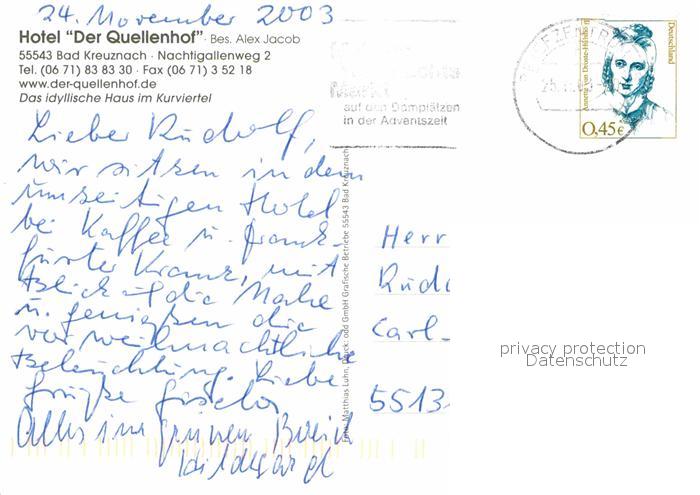 24. November 2003
Hotel "Der Quellenhof" · Bes. Alex Jacob
55543 Bad Kreuznach · Nachtigallenweg 2
Tel. (06 71) 83 83 30 · Fax (06 71) 3 52 18
www.der-quellenhof.de
Das idyllische Haus im Kurviertel
Lieber Rudolf,
wir sitzen in dem
umseitigen Hotel
bei Kaffee u. Frank-
furter Kranz, mit
Blick auf die Nahe
u. genießen die
vorweihnachtliche
Beleuchtung. Liebe
Grüße Gisela
Alles im grünen Bereich
Hildegard
Markt
auf den Domplätzen
in der Adventszeit
Annette von Droste-Hülshoff
Deutschland
0,45€
Foto: Matthias Luhn, Druck: odd GmbH Grafische Betriebe 55543 Bad Kreuznach
Herr
Rud
Carl-
5513
privacy protection
Datenschutz